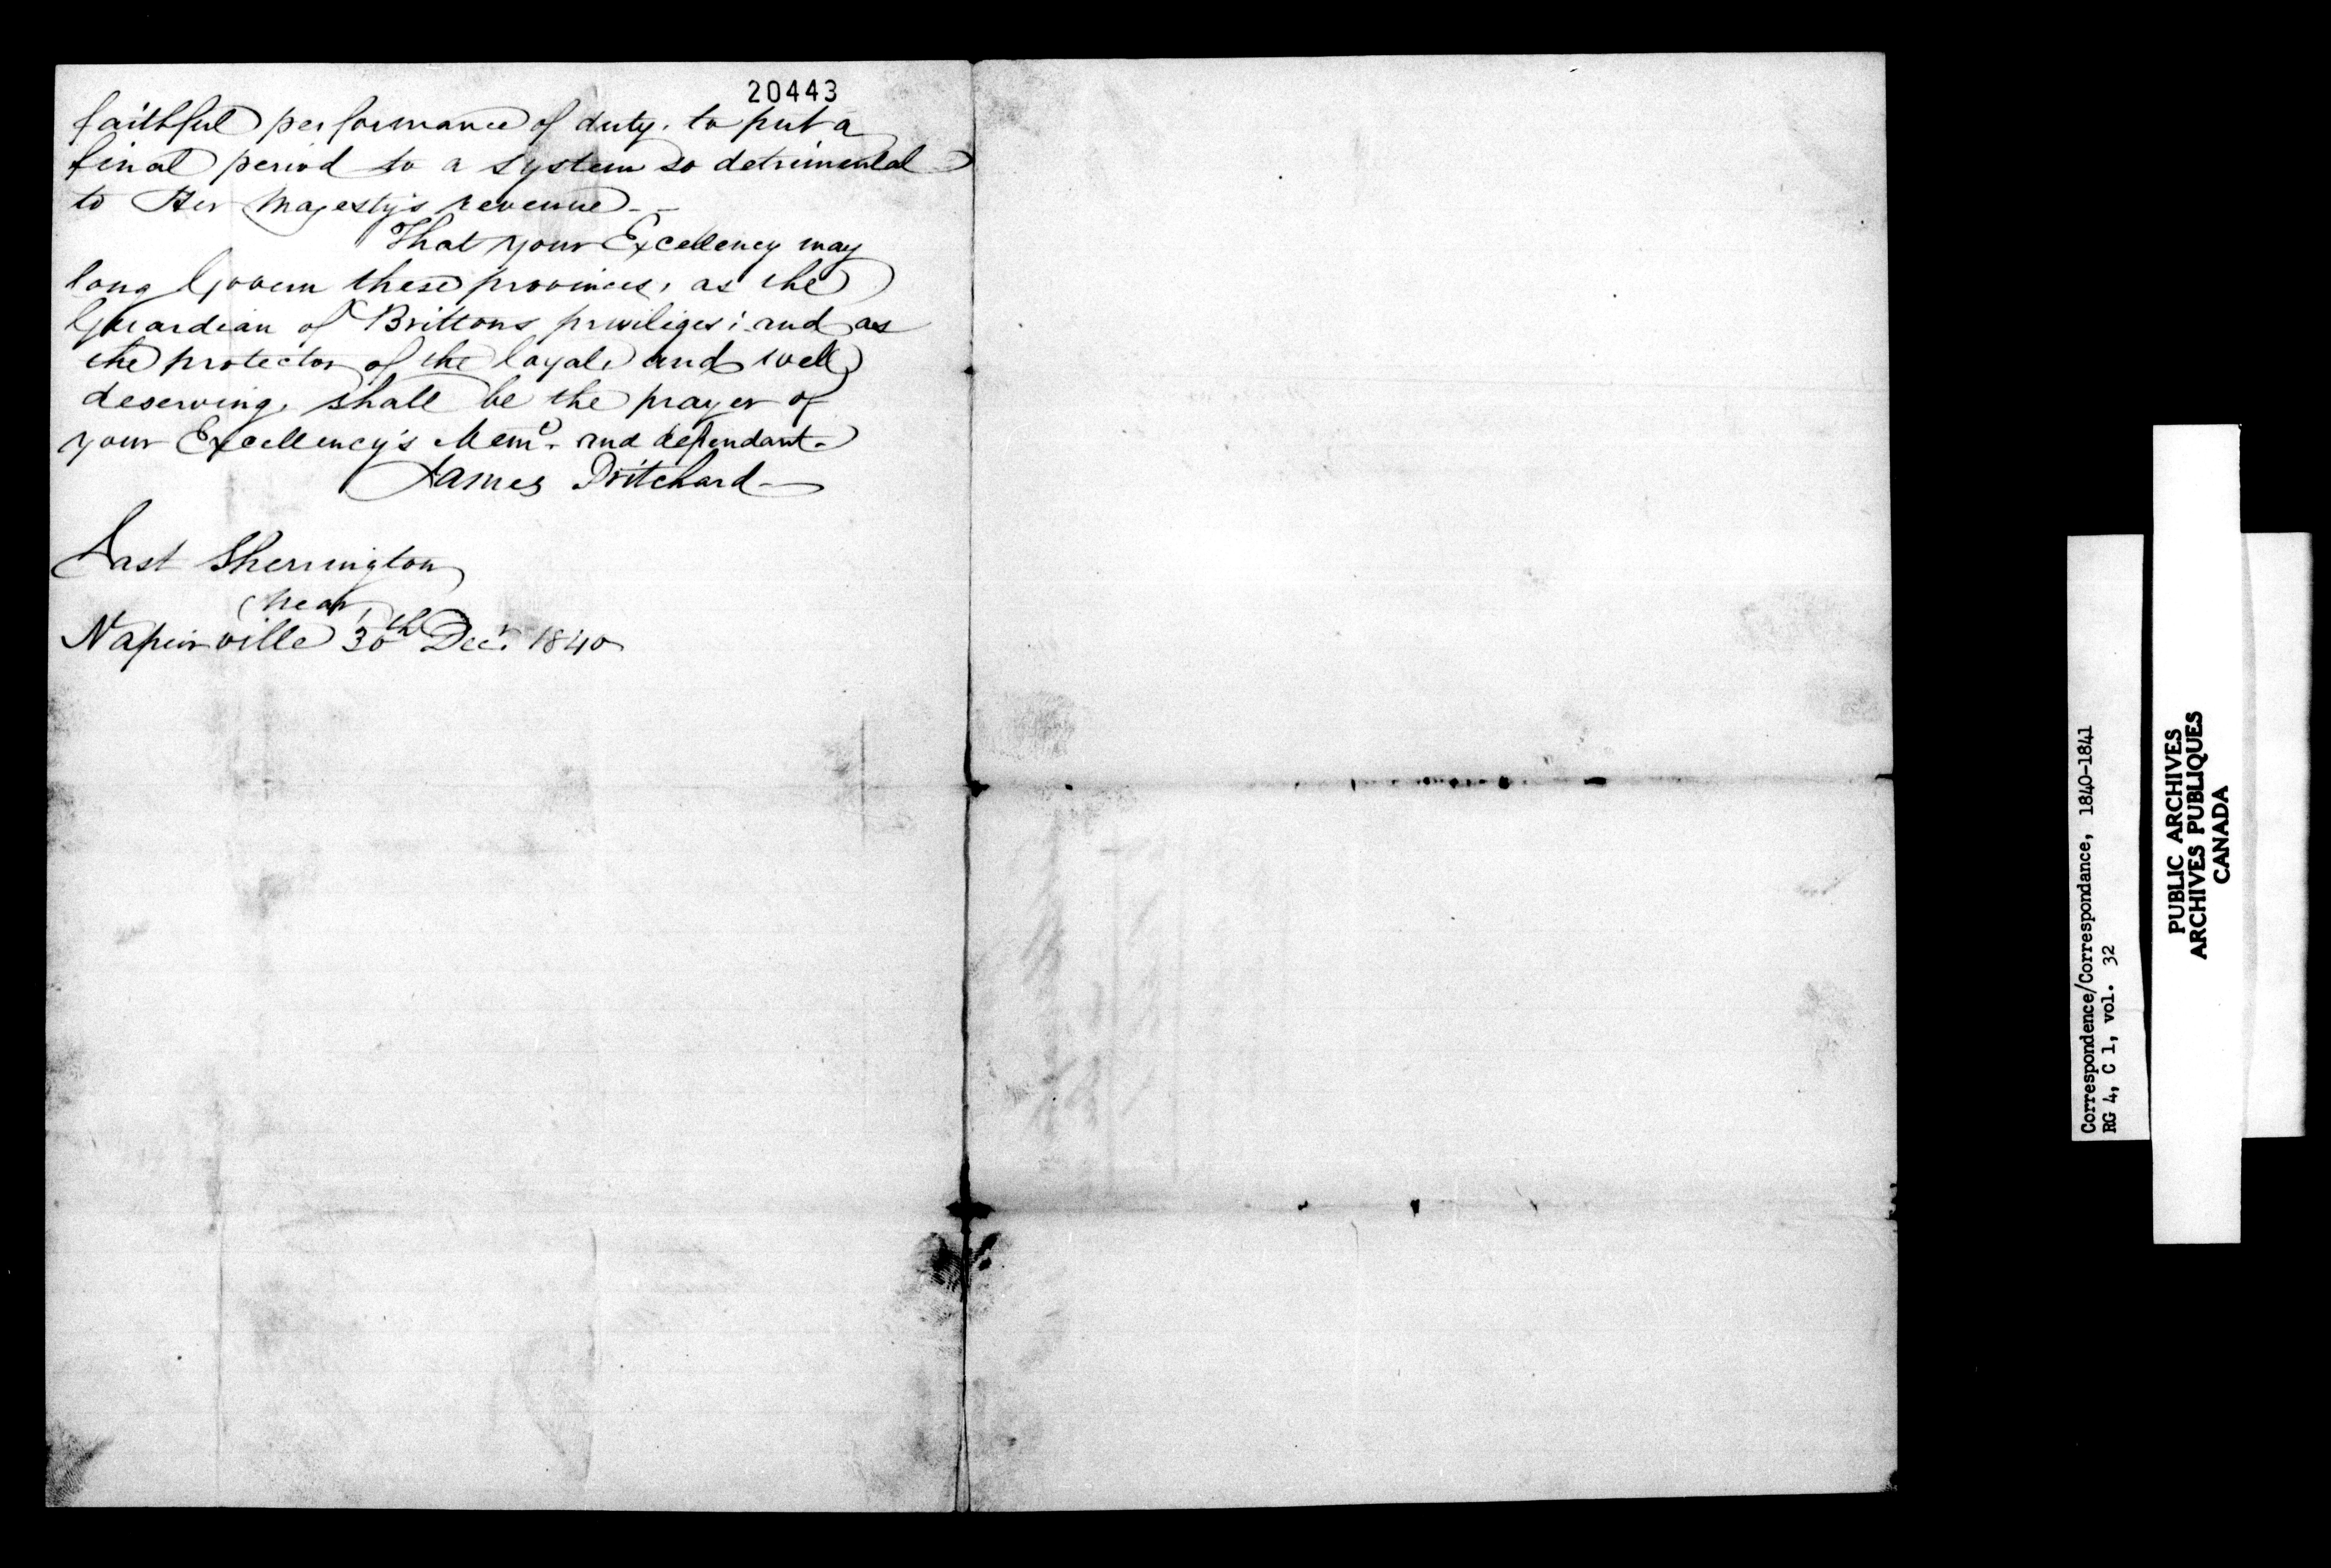 20443
faithful performance of duty, to put a
final period to a system so detrimental
to Her Majesty's revenue--
That your Excellency may
long Govern these provinces, as the
Guardian of Brittons priviliges; and as
the protector of the loyal, and well
deserving, shall be the prayer of
your Excellency's Mem^d. and dependant-
James Pritchard-
East Sherrington
near
Napierville 30th Dec^r. 1840
Correspondence/Correspondance, 1840-1841
RG 4, C 1, vol. 32
PUBLIC ARCHIVES
ARCHIVES PUBLIQUES
CANADA